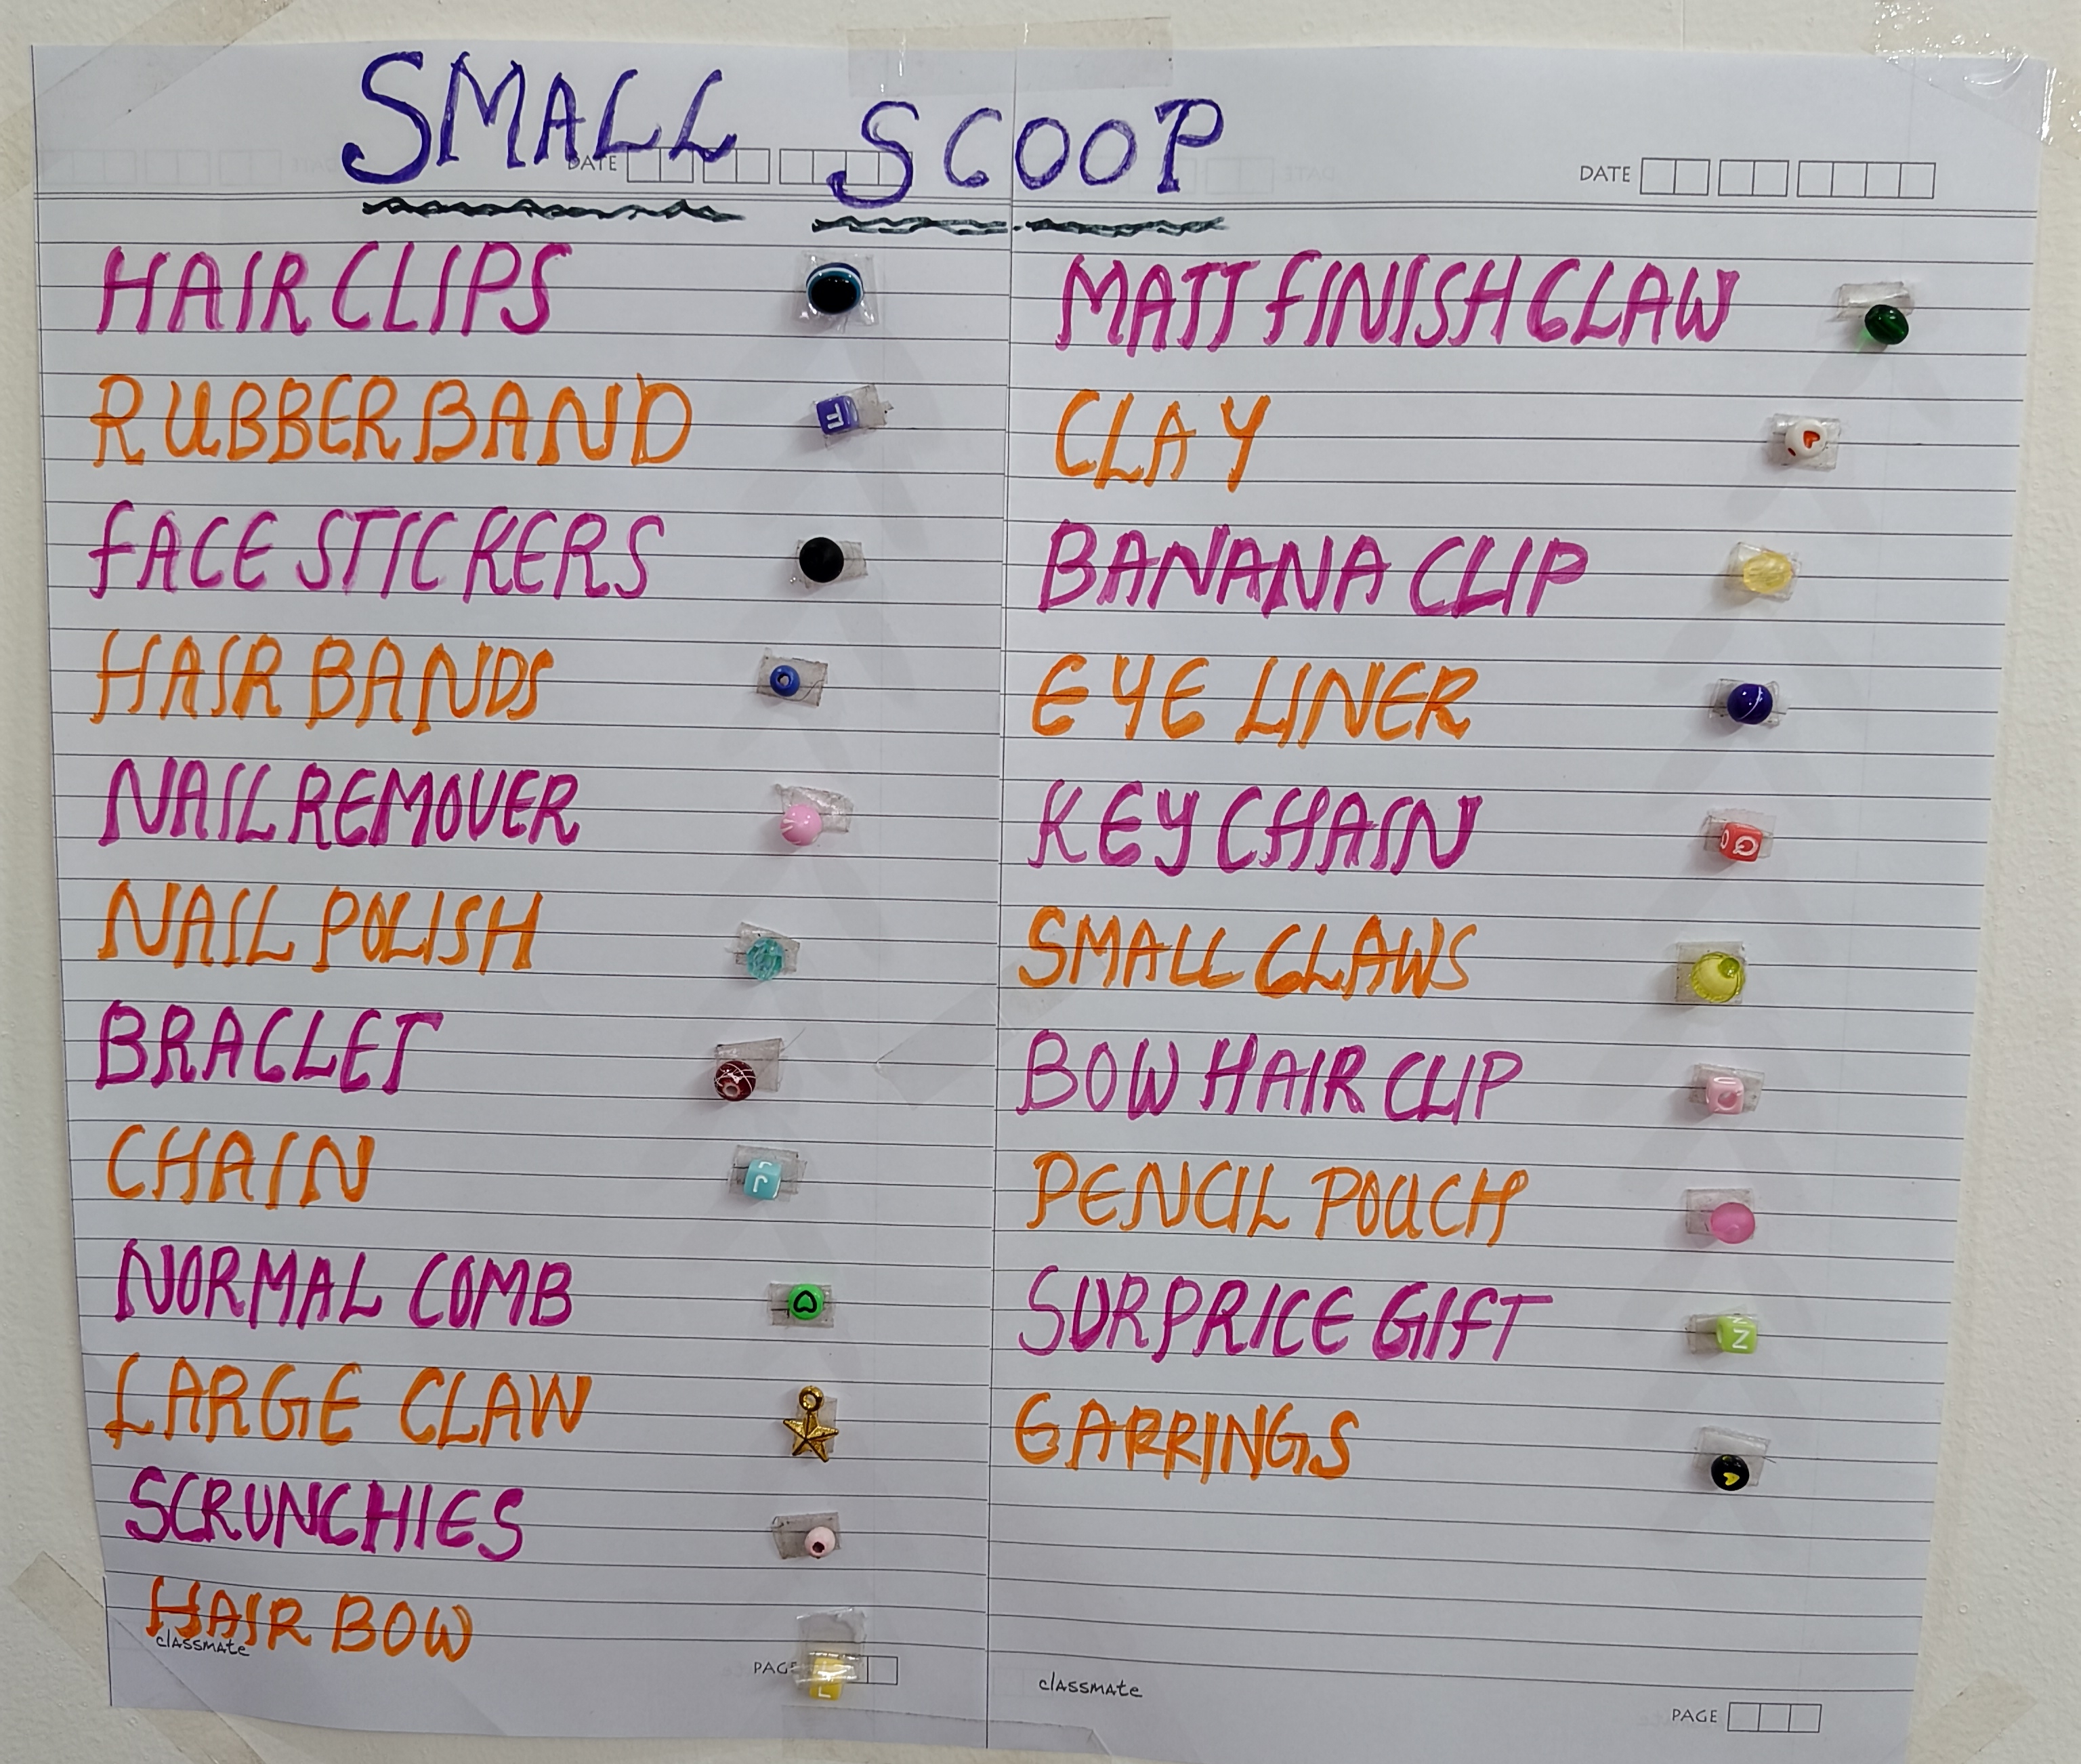 SMALL SCOOP
DATE
DATE
HAIR CLIPS
RUBBER BAND
FACE STICKERS
HAIR BANDS
NAIL REMOVER
NAIL POLISH
BRACLET
CHAIN
NORMAL COMB
LARGE CLAW
SCRUNCHIES
HAIR BOW
classmate
PAGE
MATT FINISH CLAW
CLAY
BANANA CLIP
EYE LINER
KEY CHAIN
SMALL CLAWS
BOW HAIR CLIP
PENCIL POUCH
SURPRICE GIFT
EARRINGS
classmate
PAGE